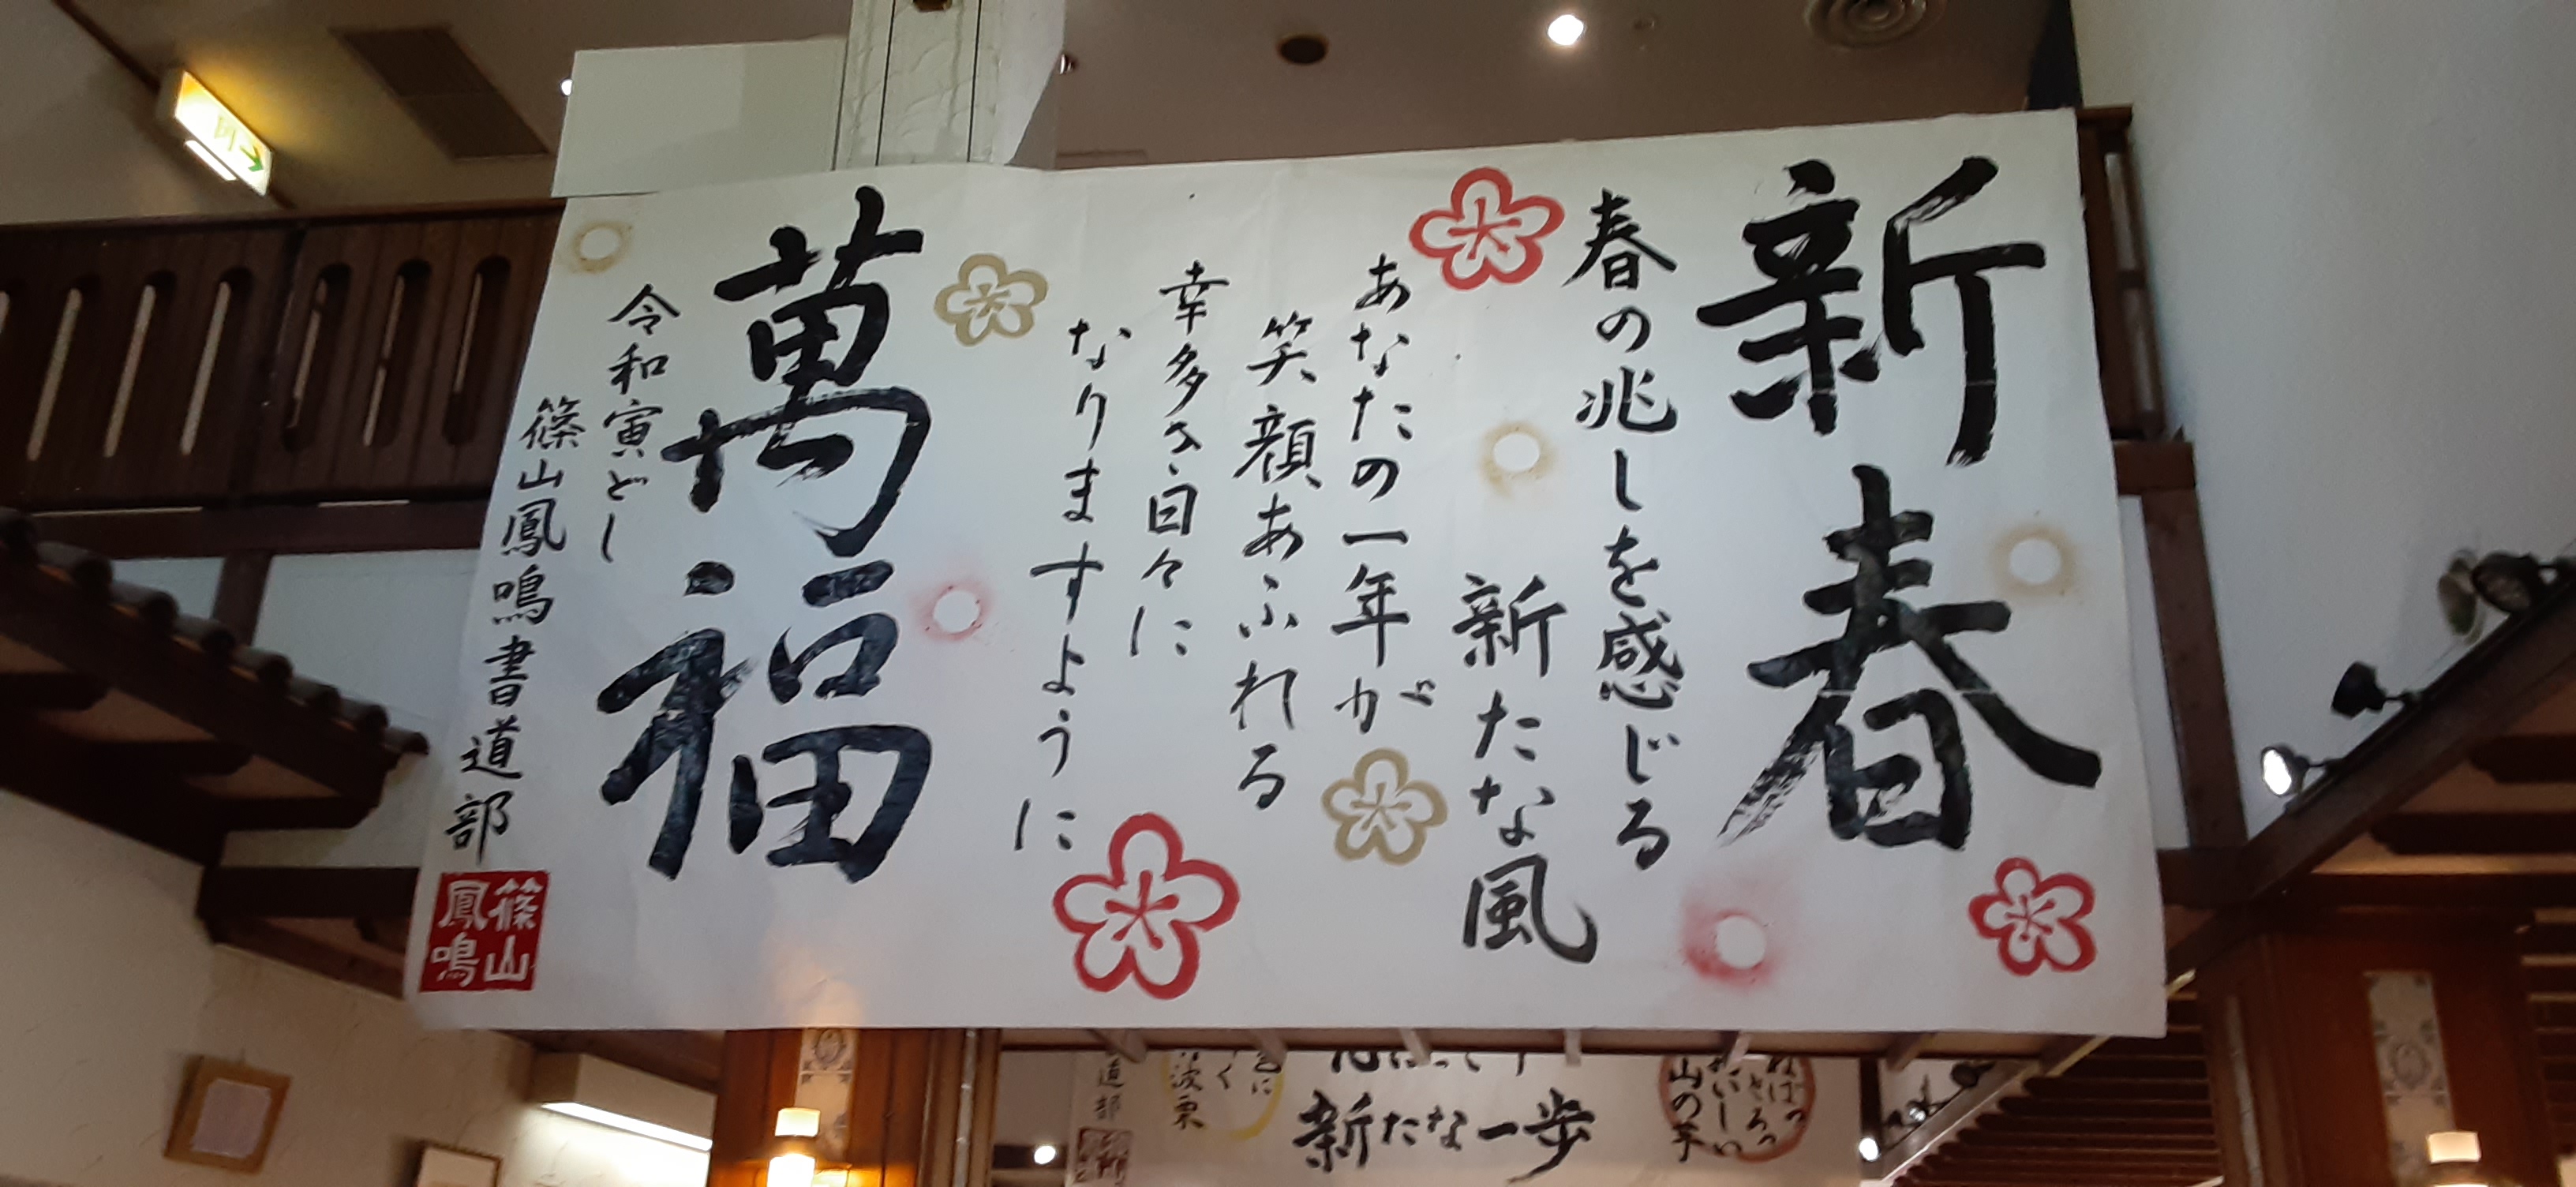 新春
春の兆しを感じる
新たな風
あなたの一年が
笑顔あふれる
幸多き日々に
なりますように
萬福
令和寅どし
篠山鳳鳴書道部
篠山
鳳鳴
おいしい
山の芋
新たな一歩
波栗
道部